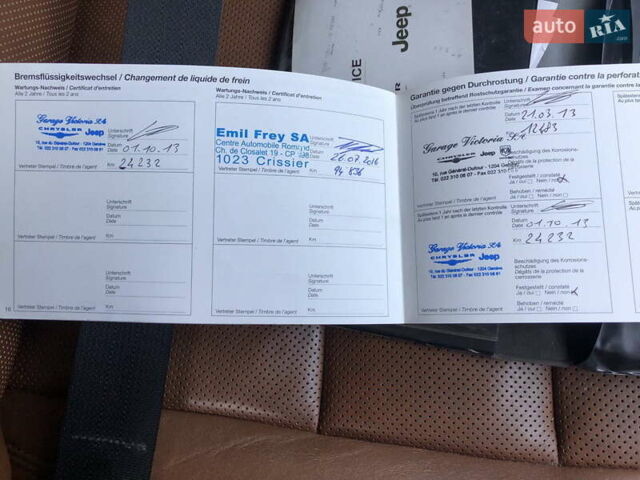 auto RIA .com
Jeep
Bremsflüssigkeitswechsel / Changement de liquide de frein
Wartungs-Nachweis / Certificat d'entretien
Alle 2 Jahre / Tous les 2 ans
Garage Victoria SA
CHRYSLER Jeep
Unterschrift
Signature
Datum
Date 01.10.13
Vertreter Stempel / Timbre de l'agent
Km 24232
Unterschrift
Signature
Datum
Date
Vertreter Stempel / Timbre de l'agent
Km
Unterschrift
Signature
Datum
Date
Vertreter Stempel / Timbre de l'agent
Km
16
Wartungs-Nachweis / Certificat d'entretien
Alle 2 Jahre / Tous les 2 ans
Emil Frey SA
Centre Automobile Romand
Ch. de Closalet 19 - CP
1023 Crissier
Unterschrift
Signature
Datum
Date 26.07.2016
Vertreter Stempel / Timbre de l'agent
Km
Unterschrift
Signature
Datum
Date
Vertreter Stempel / Timbre de l'agent
Km
Unterschrift
Signature
Datum
Date
Vertreter Stempel / Timbre de l'agent
Km
Garantie gegen Durchrostung / Garantie contre la perforat
Überprüfung betreffend Rostschutzgarantie / Examen concernant la garantie contre la
Spätestens 1 Jahr nach der letzten Kontrolle
Au plus tard 1 an après le dernier contrôle
Unterschrift
Signature
Datum
Date 21.03.13
Garage Victoria SA
CHRYSLER Jeep
16, rue du Général-Dufour - 1204 Genève
Beschädigung des Korrosions-
schutzes
Dégâts de la protection de la
corrosion
Festgestellt / constaté
Ja / oui Nein / non
Behoben / remédié
Ja / oui Nein / non
Vertreter Stempel / Timbre de l'agent
Spätestens 1 Jahr nach der letzten Kontrolle
Au plus tard 1 an après le dernier contrôle
Unterschrift
Signature
Datum
Date 01.10.13
Km 24232
Garage Victoria SA
CHRYSLER Jeep
16, rue du Général-Dufour - 1204 Genève
Beschädigung des Korrosions-
schutzes
Dégâts de la protection de la
corrosion
Festgestellt / constaté
Ja / oui Nein / non
Behoben / remédié
Ja / oui Nein / non
Vertreter Stempel / Timbre de l'agent